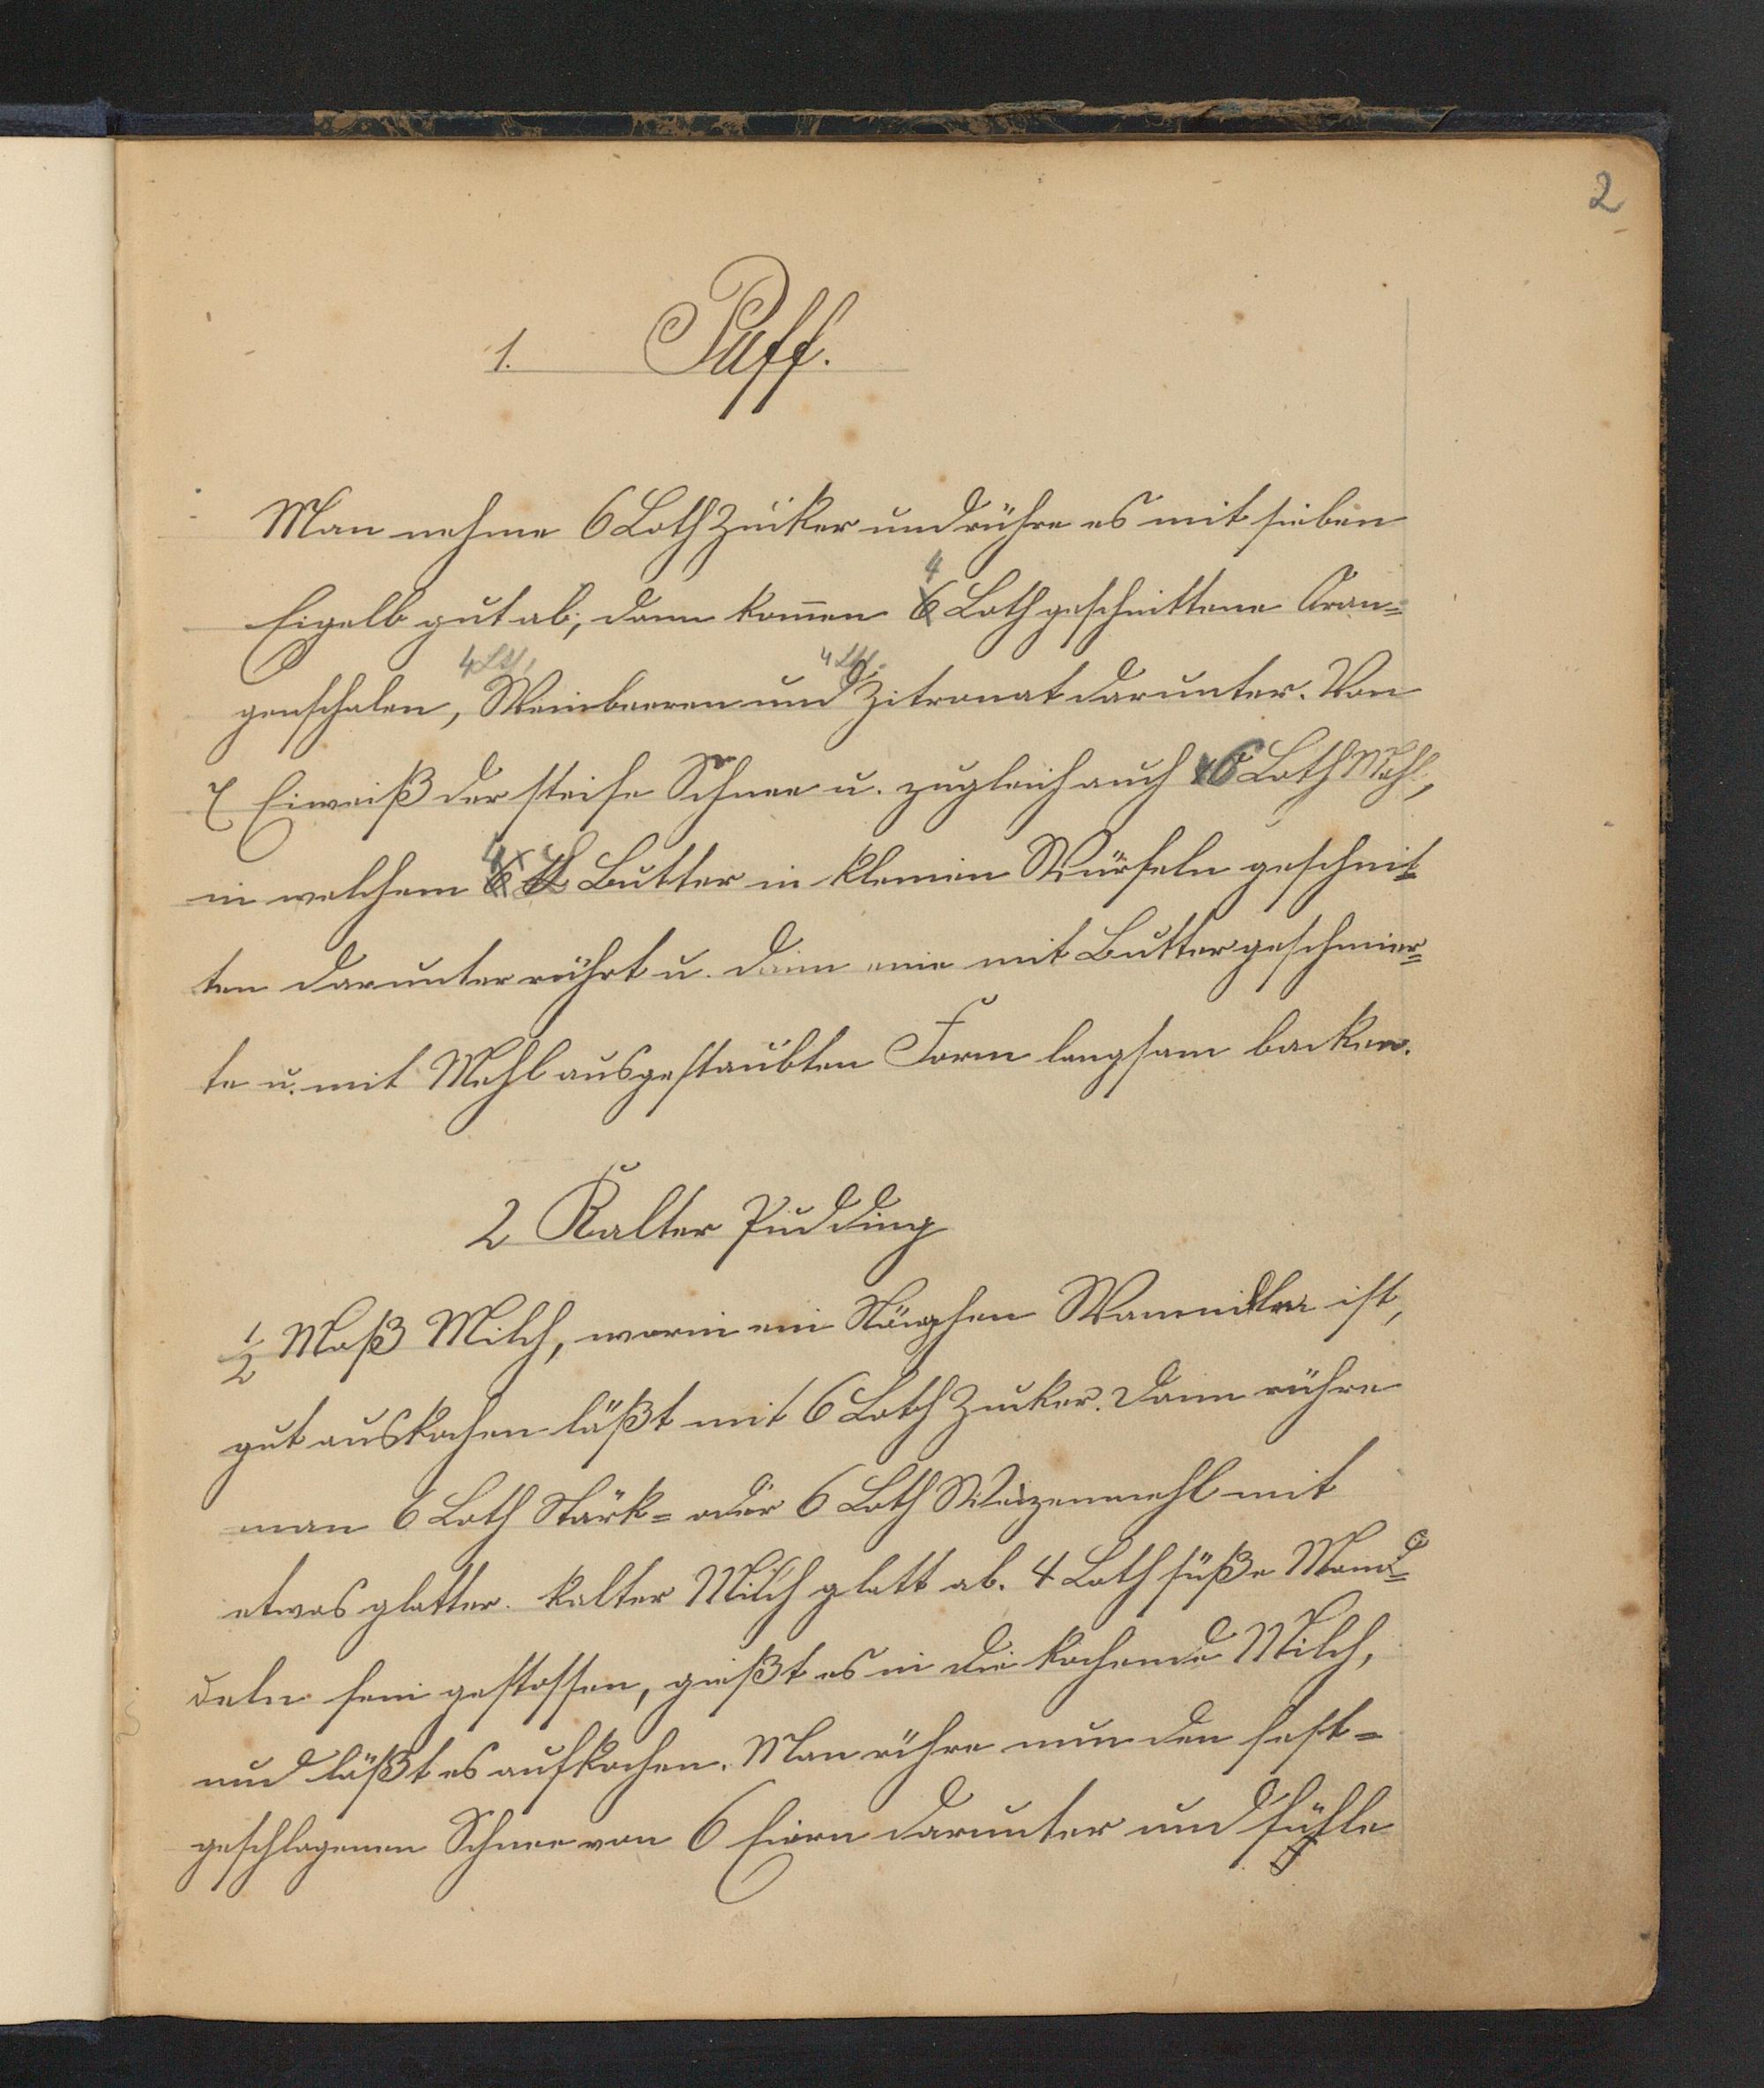 2
1. Puff.
Man nehme 6 Loth Zucker und rühre es mit sieben
4
Eigelb gut ab, dann kom̄en 6 Loth geschnittene Oran-
4 Lth, 4 Lth.
genschalen, Weinbeeren und Zitronat darunter. Von
7 Eiweiß der steife Schnee u. zugleich auch 6 Loth Mehl,
4
in welchem 6 Butter in kleinen Würfeln geschnit-
ten darunter rührt u. dann eine mit Butter geschmier-
te u. mit Mehl ausgestaubten Form langsam backen.
2 Kalter Pudding
1/2 Maß Milch, worin ein Stängchen Wannillen ist,
gut auskochen läßt mit 6 Loth Zucker. Dann rühre
man 6 Loth Stärk- oder 6 Loth Weizenmehl mit
etwas glatter. kalter Milch glatt ab. 4 Loth süße Mand-
deln fein gestossen, gießt es in die kochende Milch,
und läßt es aufkochen. Man rühre nun den fest-
geschlagenen Schnee von 6 Eiern darunter und fühle